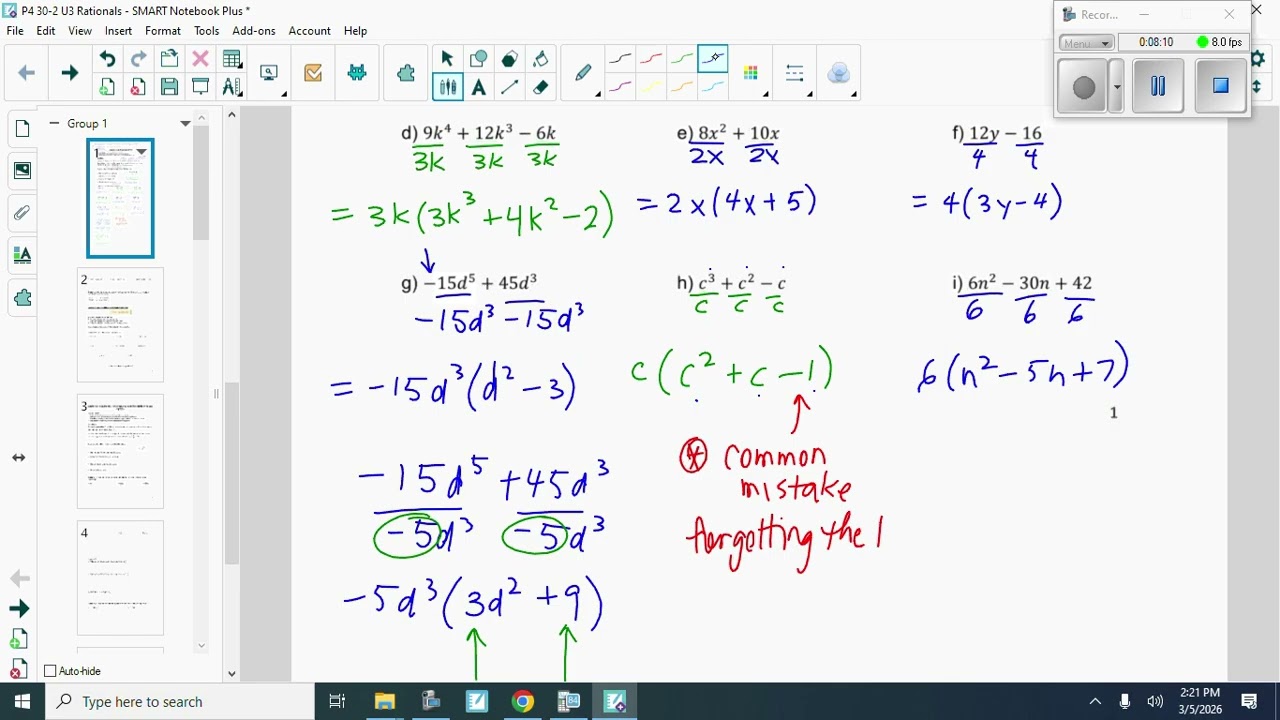 P4 30-2 U3 Rationals - SMART Notebook Plus *
File Edit View Insert Format Tools Add-ons Account Help
Recor...
Menu
0:08:10
8.0 fps
Group 1
1
2
3
4
Auto-hide
d) 9k⁴ + 12k³ − 6k
3k 3k 3k
= 3k(3k³ + 4k² − 2)
e) 8x² + 10x
2x 2x
= 2x(4x + 5)
f) 12y − 16
4 4
= 4(3y − 4)
g) −15d⁵ + 45d³
−15d³ −15d³
= −15d³(d² − 3)
−15d⁵ + 45d³
−5d³ −5d³
−5d³(3d² + 9)
h) c³ + c² − c
c c c
c(c² + c − 1)
* common
mistake
forgetting the 1
i) 6n² − 30n + 42
6 6 6
6(n² − 5n + 7)
1
Type here to search
2:21 PM
3/5/2026